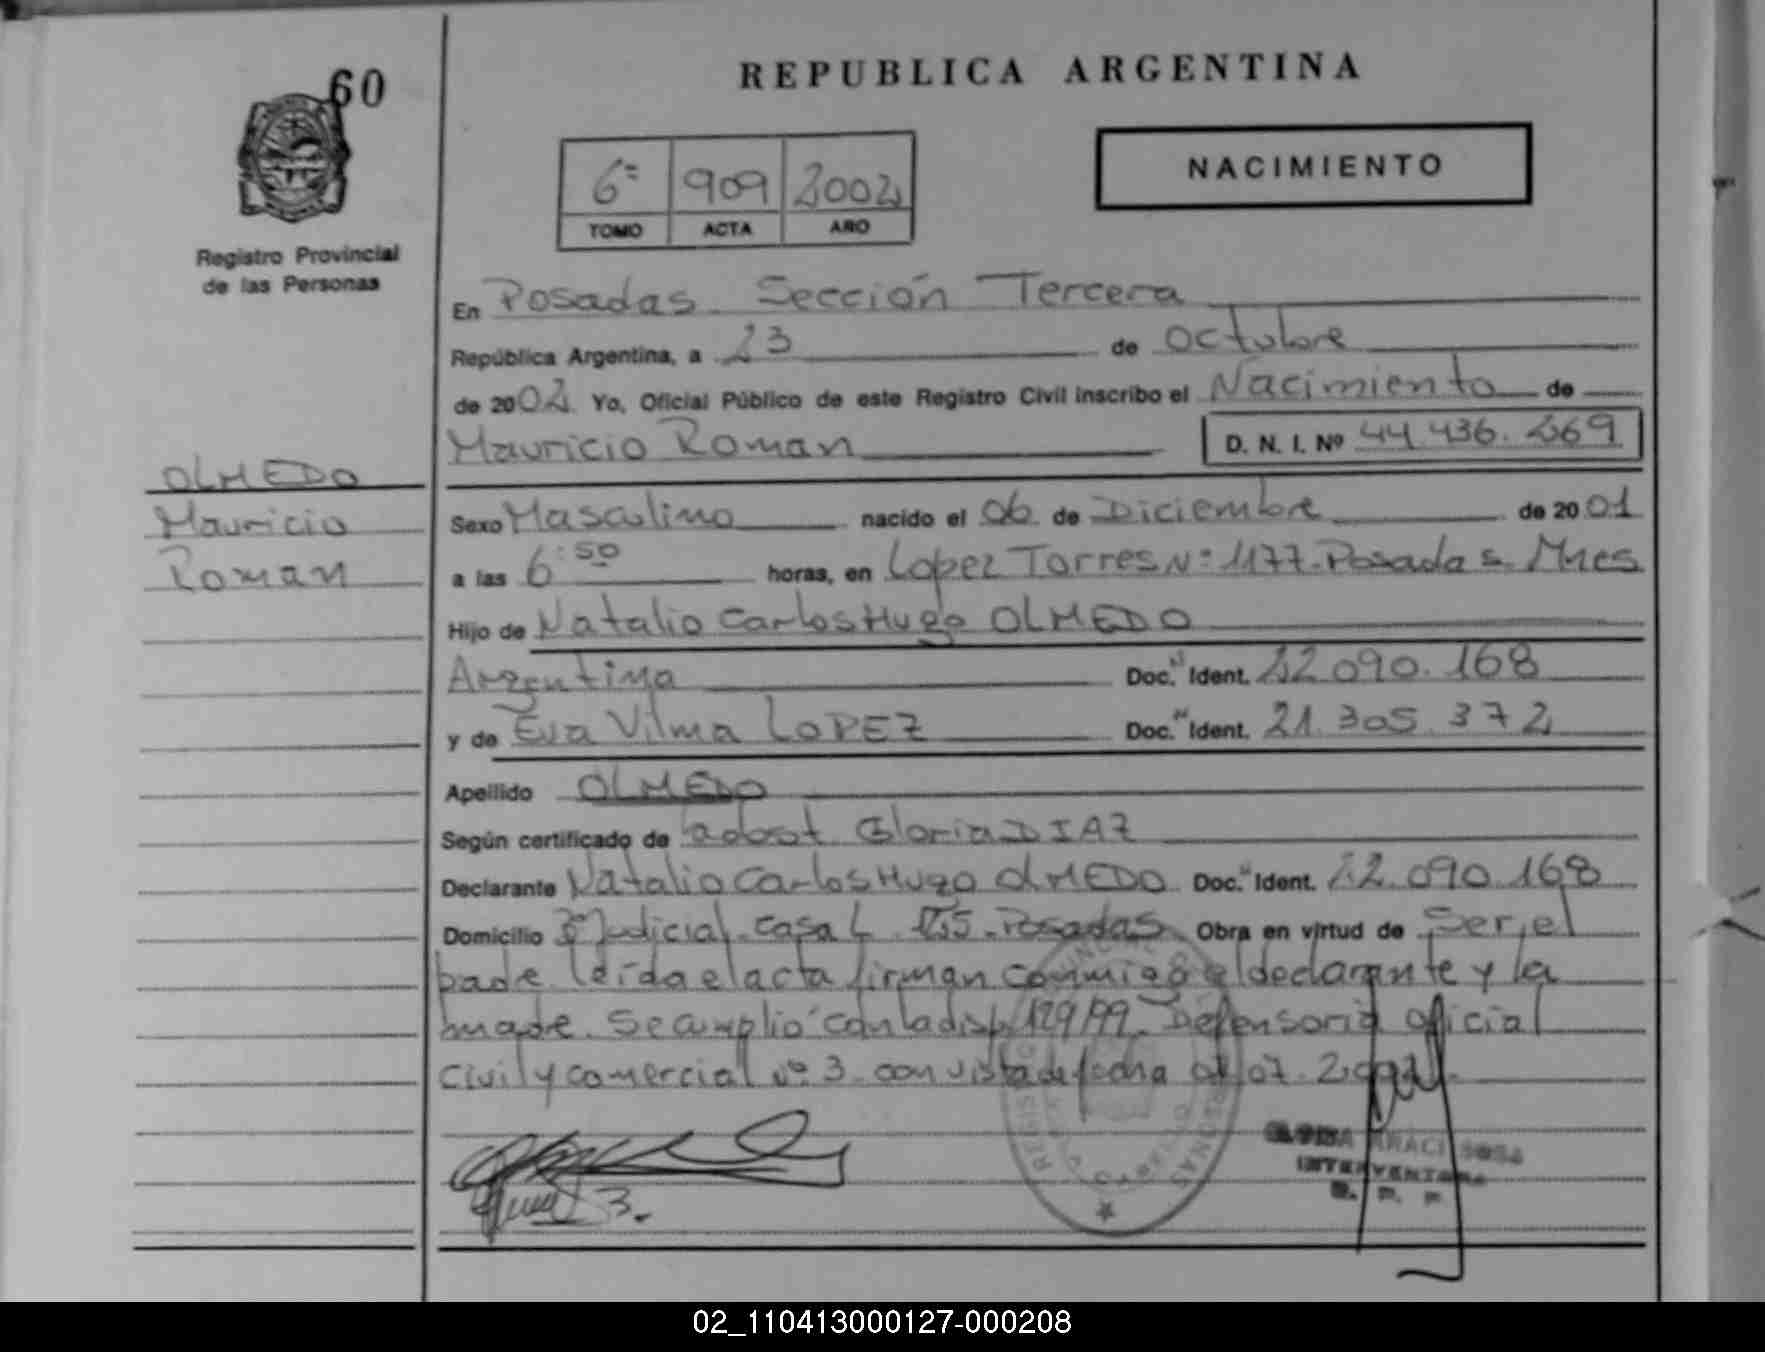 60
REPUBLICA ARGENTINA
NACIMIENTO
6º 909 2002
TOMO ACTA AÑO
Registro Provincial
de las Personas
En Posadas. Sección Tercera
República Argentina, a 23 de Octubre
de 2002 Yo, Oficial Público de este Registro Civil inscribo el Nacimiento de
Mauricio Roman D. N. I. Nº 44.436.269
OLMEDO
Mauricio
Roman
Sexo Masculino nacido el 06 de Diciembre de 2001
a las 6:50 horas, en Lopez Torres Nº 1177. Posadas. Mnes
Hijo de Natalio Carlos Hugo OLMEDO
Argentina Doc. N Ident. 22.090.168
y de Eva Vilma LOPEZ Doc. N Ident. 21.305.372
Apellido OLMEDO
Según certificado de Gloria DIAZ
Declarante Natalio Carlos Hugo OLMEDO Doc. Ident. 22.090.168
Domicilio Judicial. Casa Posadas Obra en virtud de Ser el
padre. leída el acta firman conmigo el declarante y la
madre. Se cumplió con la disp 129/99. Defensoria oficial
civil y comercial nº 3. con vista de fecha 07.
3.
ARACI SOSA
INTERVENTORA
R. P. P.
02_110413000127-000208